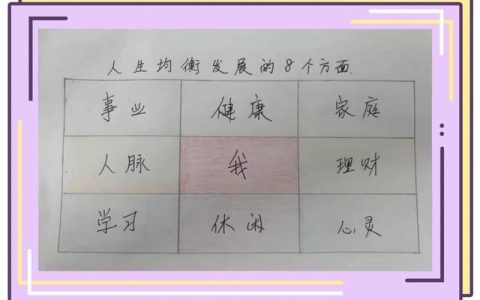 人生均衡发展的8个方面.
事业 健康 家庭
人脉 我 理财
学习 休闲 心灵